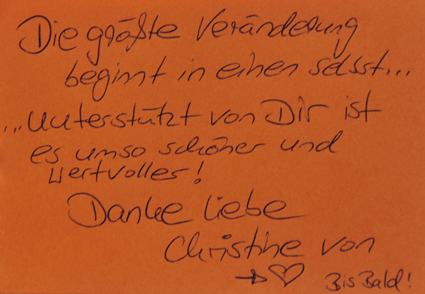 Die größte Veränderung
beginnt in einen selbst...
...unterstützt von Dir ist
es umso schöner und
wertvoller!
Danke liebe
Christine von
→♡ Bis Bald!